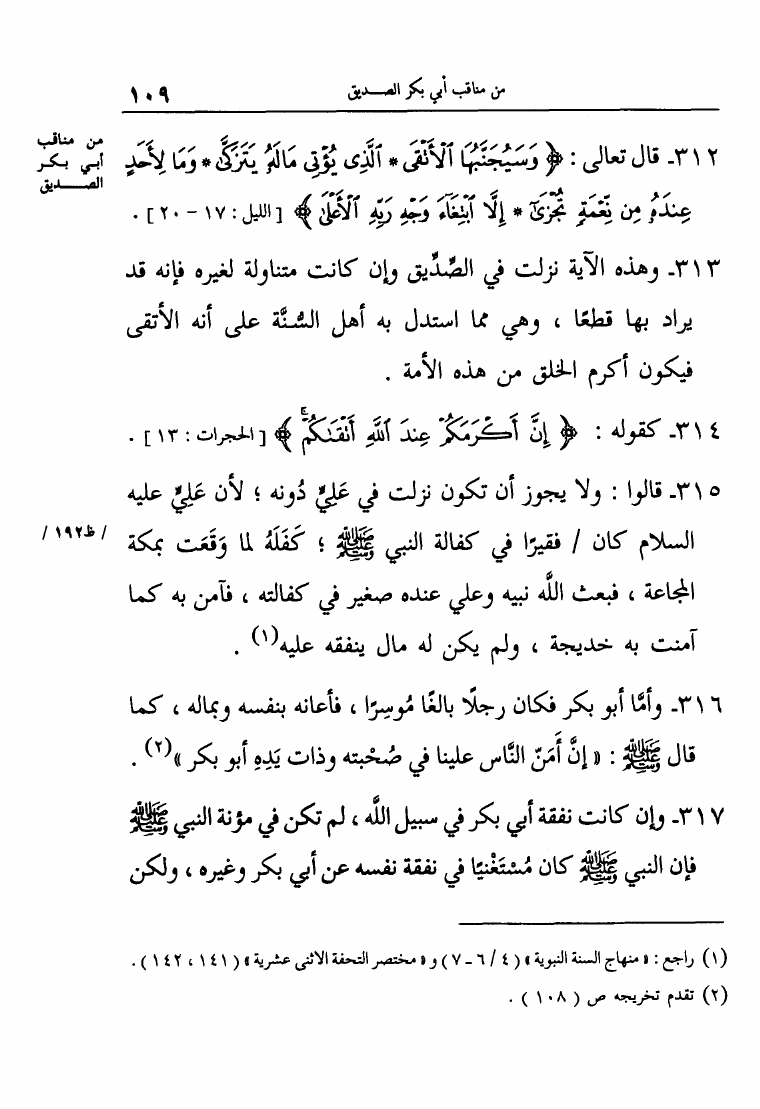 من مناقب أبي بكر الصـــديق
١٠٩
من مناقب
أبـي بـكـر
الصـــديق
٣١٢ـ قال تعالى : ﴿ وَسَيُجَنَّبُهَا ٱلْأَتْقَى * ٱلَّذِى يُؤْتِى مَالَهُۥ يَتَزَكَّىٰ * وَمَا لِأَحَدٍ
عِندَهُۥ مِن نِّعْمَةٍ تُجْزَىٰٓ * إِلَّا ٱبْتِغَآءَ وَجْهِ رَبِّهِ ٱلْأَعْلَىٰ ﴾ [ الليل : ١٧ – ٢٠ ] .
٣١٣ـ وهذه الآية نزلت في الصِّدِّيق وإن كانت متناولة لغيره فإنه قد
يراد بها قطعًا ، وهي مما استدل به أهل السُّنَّة على أنه الأتقى
فيكون أكرم الخلق من هذه الأمة .
٣١٤ـ كقوله : ﴿ إِنَّ أَكْرَمَكُمْ عِندَ ٱللَّهِ أَتْقَىٰكُمْ ۚ ﴾ [ الحجرات : ١٣ ] .
٣١٥ـ قالوا : ولا يجوز أن تكون نزلت في عَلِيٍّ دُونه ؛ لأن عَلِيٍّ عليه
السلام كان / فقيرًا في كفالة النبي ﷺ ؛ كَفَلَهُ لما وَقَعَت بمكة
/ ظ١٩٢ /
المجاعة ، فبعث اللَّه نبيه وعلي عنده صغير في كفالته ، فآمن به كما
آمنت به خديجة ، ولم يكن له مال ينفقه عليه(١) .
٣١٦ـ وأمَّا أبو بكر فكان رجلًا بالغًا مُوسِرًا ، فأعانه بنفسه وبماله ، كما
قال ﷺ : « إنَّ أَمَنّ النَّاس علينا في صُحْبته وذات يَدِهِ أبو بكر »(٢) .
٣١٧ـ وإن كانت نفقة أبي بكر في سبيل اللَّه ، لم تكن في مؤنة النبي ﷺ
فإن النبي ﷺ كان مُسْتَغْنيًا في نفقة نفسه عن أبي بكر وغيره ، ولكن
(١) راجع : « منهاج السنة النبوية » ( ٤ / ٦ ـ ٧ ) و « مختصر التحفة الاثنى عشرية » ( ١٤١ ، ١٤٢ ) .
(٢) تقدم تخريجه ص ( ١٠٨ ) .